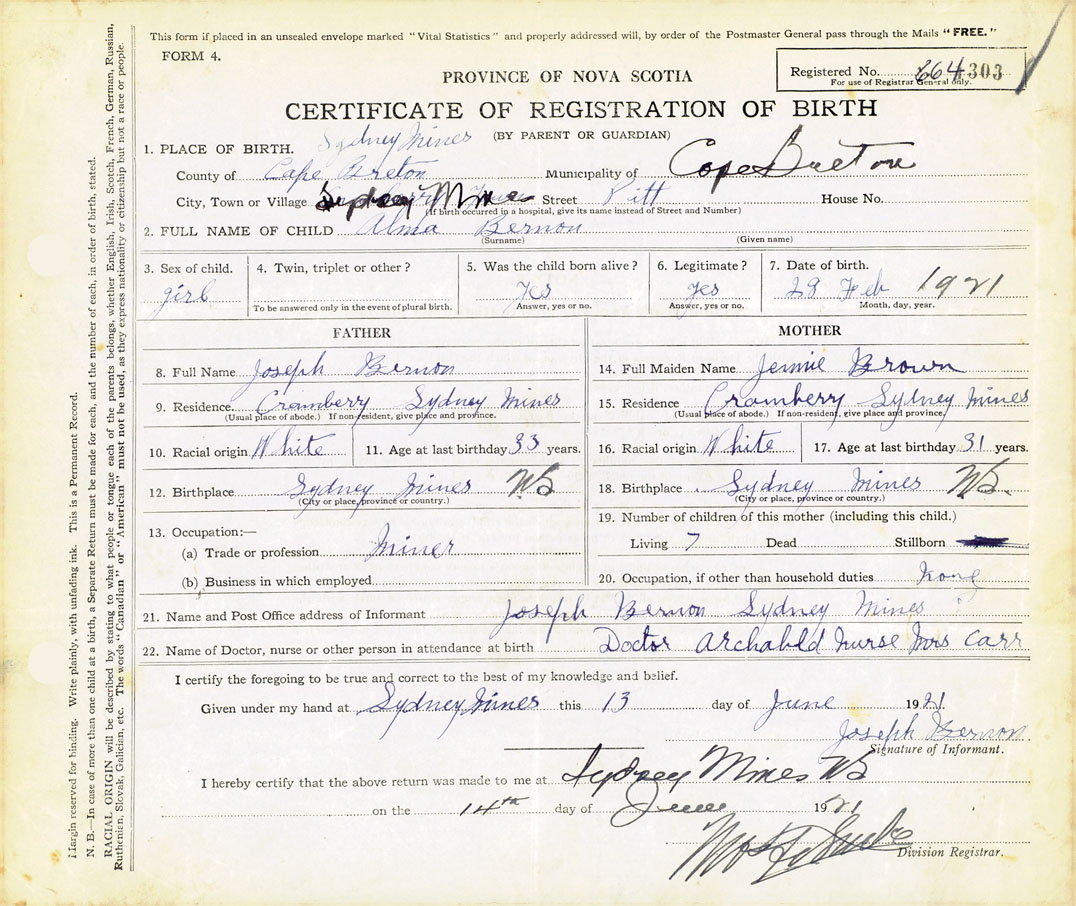 This form if placed in an unsealed envelope marked "Vital Statistics" and properly addressed will, by order of the Postmaster General pass through the Mails "FREE."
FORM 4.
Registered No. 664 303
For use of Registrar General only.
PROVINCE OF NOVA SCOTIA
CERTIFICATE OF REGISTRATION OF BIRTH
(BY PARENT OR GUARDIAN)
Sydney Mines
1. PLACE OF BIRTH.
County of Cape Breton Municipality of Cape Breton
City, Town or Village Sydney Mines Street Pitt House No.
(If birth occurred in a hospital, give its name instead of Street and Number)
2. FULL NAME OF CHILD Alma Bernon
(Surname) (Given name)
3. Sex of child. 4. Twin, triplet or other? 5. Was the child born alive? 6. Legitimate? 7. Date of birth.
girl yes yes 28 Feb 1921
To be answered only in the event of plural birth. Answer, yes or no. Answer, yes or no. Month, day, year.
FATHER
8. Full Name Joseph Bernon
9. Residence. Cramberry Sydney Mines
(Usual place of abode.) If non-resident, give place and province.
10. Racial origin White 11. Age at last birthday 33 years.
12. Birthplace Sydney Mines NS
(City or place, province or country.)
13. Occupation:—
(a) Trade or profession Miner
(b) Business in which employed
MOTHER
14. Full Maiden Name Jennie Brown
15. Residence Cramberry Sydney Mines
(Usual place of abode.) If non-resident, give place and province.
16. Racial origin White 17. Age at last birthday 31 years.
18. Birthplace Sydney Mines NS.
(City or place, province or country.)
19. Number of children of this mother (including this child.)
Living 7 Dead Stillborn
20. Occupation, if other than household duties None
21. Name and Post Office address of Informant Joseph Bernon Sydney Mines
22. Name of Doctor, nurse or other person in attendance at birth Doctor Archabld Nurse Mrs Carr
I certify the foregoing to be true and correct to the best of my knowledge and belief.
Given under my hand at Sydney Mines this 13 day of June 1921.
Joseph Bernon
Signature of Informant.
I hereby certify that the above return was made to me at Sydney Mines NS
on the 14th day of June 1921
Division Registrar.
Margin reserved for binding. Write plainly, with unfading ink. This is a Permanent Record.
N. B.—In case of more than one child at a birth, a Separate Return must be made for each, and the number of each, in order of birth, stated.
RACIAL ORIGIN will be described by stating to what people or tongue each of the parents belongs, whether English, Irish, Scotch, French, German, Russian,
Ruthenian, Slovak, Galician, etc. The words "Canadian" or "American" must not be used, as they express nationality or citizenship but not a race or people.